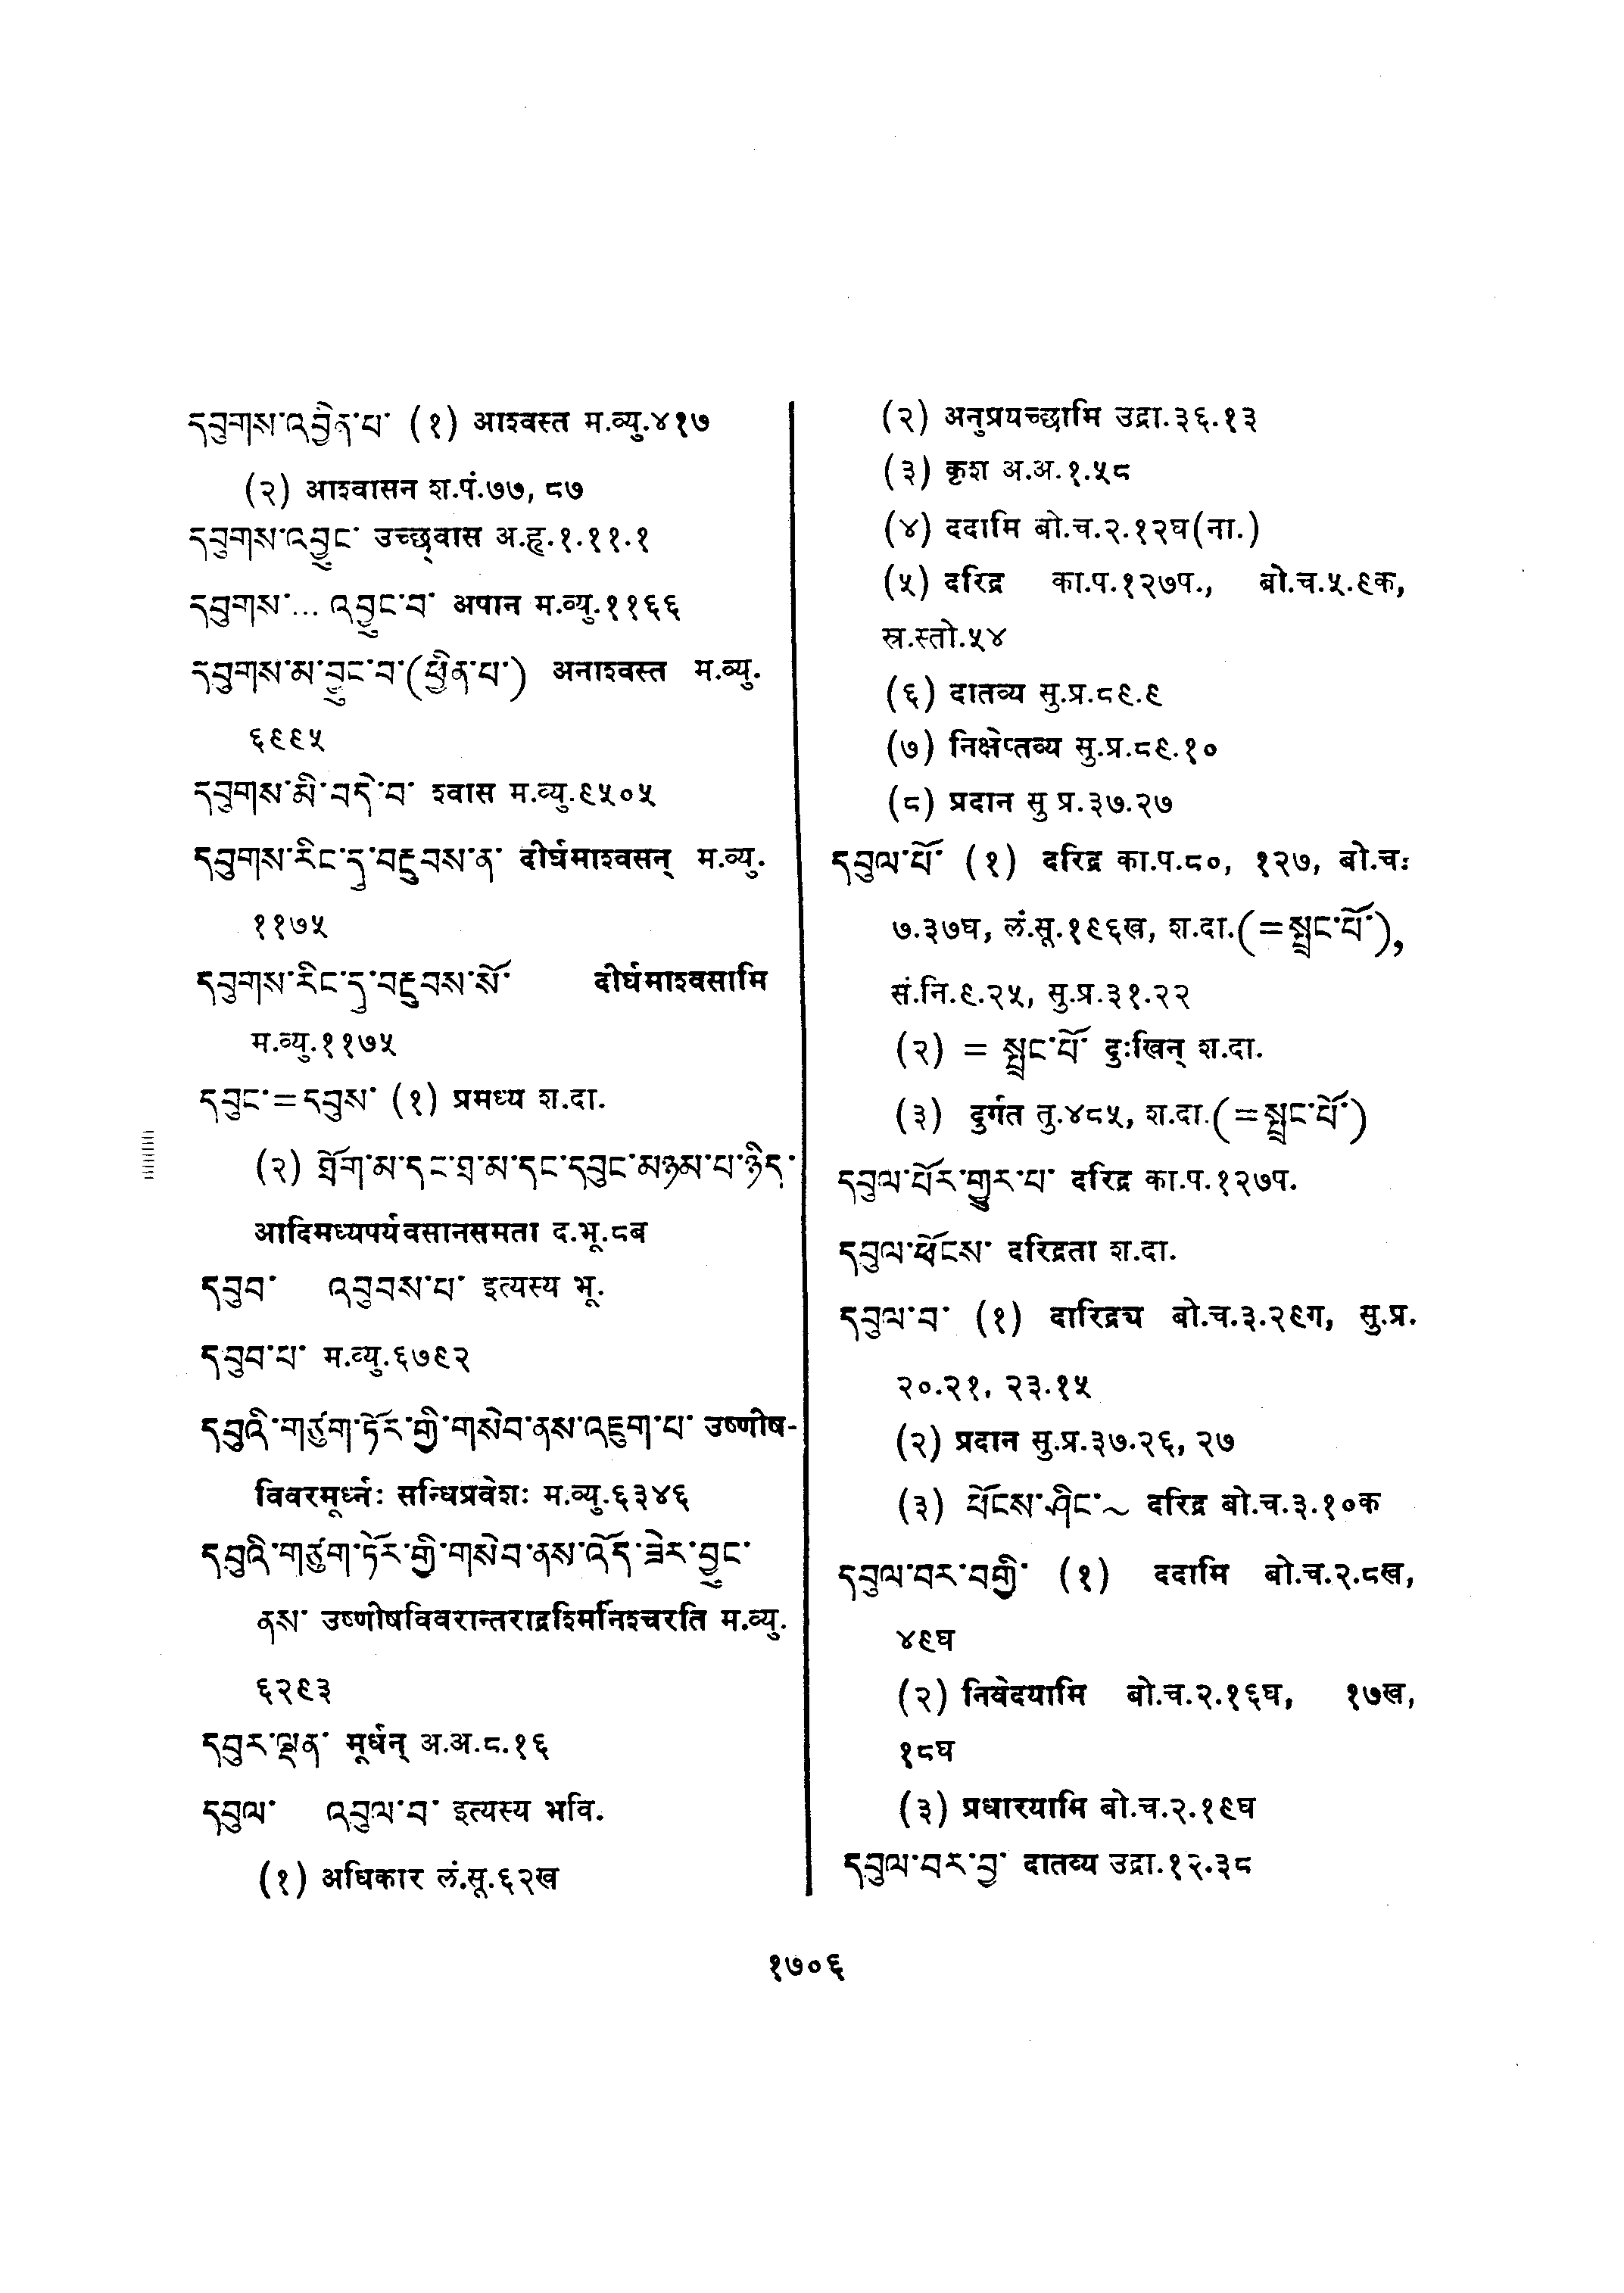 དབུགས་འབྱིན་པ་ (१) आश्वस्त म.व्यु.४१७
(२) आश्वासन श.पं.७७, ८७
དབུགས་འབྱུང་ उच्छ्वास अ.हृ.१.११.१
དབུགས་... འབྱུང་བ་ अपान म.व्यु.११६६
དབུགས་མ་བྱུང་བ་(ཕྱིན་པ་) अनाश्वस्त म.व्यु.
६९९५
དབུགས་མི་བདེ་བ་ श्वास म.व्यु.९५०५
དབུགས་རིང་དུ་བརྔུབས་ན་ दीर्घमाश्वसन् म.व्यु.
११७५
དབུགས་རིང་དུ་བརྔུབས་སོ་ दीर्घमाश्वसामि
म.व्यु.११७५
དབུང་=དབུས་ (१) प्रमध्य श.दा.
(२) ཐོག་མ་དང་ཐ་མ་དང་དབུང་མཉམ་པ་ཉིད་
आदिमध्यपर्यवसानसमता द.भू.८ब
དབུབ་ འབུབས་པ་ इत्यस्य भू.
དབུབ་པ་ म.व्यु.६७९२
དབུའི་གཙུག་ཏོར་གྱི་གསེབ་ནས་འཇུག་པ་ उष्णीष-
विवरमूर्ध्नः सन्धिप्रवेशः म.व्यु.६३४६
དབུའི་གཙུག་ཏོར་གྱི་གསེབ་ནས་འོད་ཟེར་བྱུང་
ནས་ उष्णीषविवरान्तराद्रश्मिर्निश्चरति म.व्यु.
६२९३
དབུར་ལྡན་ मूर्धन् अ.अ.८.१६
དབུལ་ འབུལ་བ་ इत्यस्य भवि.
(१) अधिकार लं.सू.६२ख
(२) अनुप्रयच्छामि उद्रा.३६.१३
(३) कृश अ.अ.१.५८
(४) ददामि बो.च.२.१२घ(ना.)
(५) दरिद्र का.प.१२७प., बो.च.५.९क,
स्र.स्तो.५४
(६) दातव्य सु.प्र.८९.९
(७) निक्षेप्तव्य सु.प्र.८९.१०
(८) प्रदान सु प्र.३७.२७
དབུལ་པོ་ (१) दरिद्र का.प.८०, १२७, बो.चः
७.३७घ, लं.सू.१९६ख, श.दा.(=སྤྲང་པོ་),
सं.नि.९.२५, सु.प्र.३१.२२
(२) = སྤྲང་པོ་ दुःखिन् श.दा.
(३) दुर्गत तु.४८५, श.दा.(=སྤྲང་པོ་)
དབུལ་པོར་གྱུར་པ་ दरिद्र का.प.१२७प.
དབུལ་ཕོངས་ दरिद्रता श.दा.
དབུལ་བ་ (१) दारिद्र्य बो.च.३.२९ग, सु.प्र.
२०.२१, २३.१५
(२) प्रदान सु.प्र.३७.२६, २७
(३) ཕོངས་ཤིང་~ दरिद्र बो.च.३.१०क
དབུལ་བར་བགྱི་ (१) ददामि बो.च.२.८ख,
४९घ
(२) निवेदयामि बो.च.२.१६घ, १७ख,
१८घ
(३) प्रधारयामि बो.च.२.१९घ
དབུལ་བར་བྱ་ दातव्य उद्रा.१२.३८
१७०६